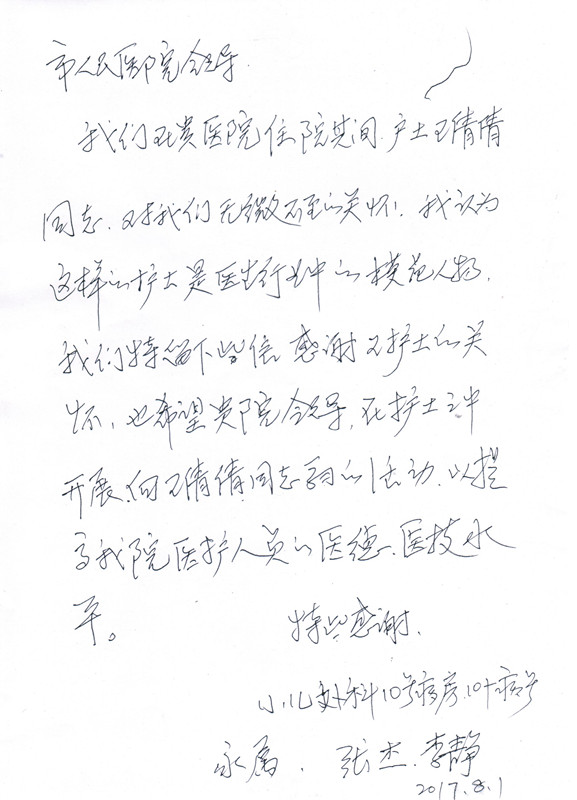 市人民医院领导.
我们在贵医院住院其间.护士王倩倩
同志.对我们无微不至的关怀.我认为
这样的护士是医生行业中的模范人物.
我们特留下此信感谢对护士的关
怀,也希望贵院领导,在护士之中
开展向王倩倩同志的活动.以提
高我院医护人员的医德.医技水
平。
特此感谢.
小儿外科10号病房.10个病号
家属.张杰.李静
2017.8.1